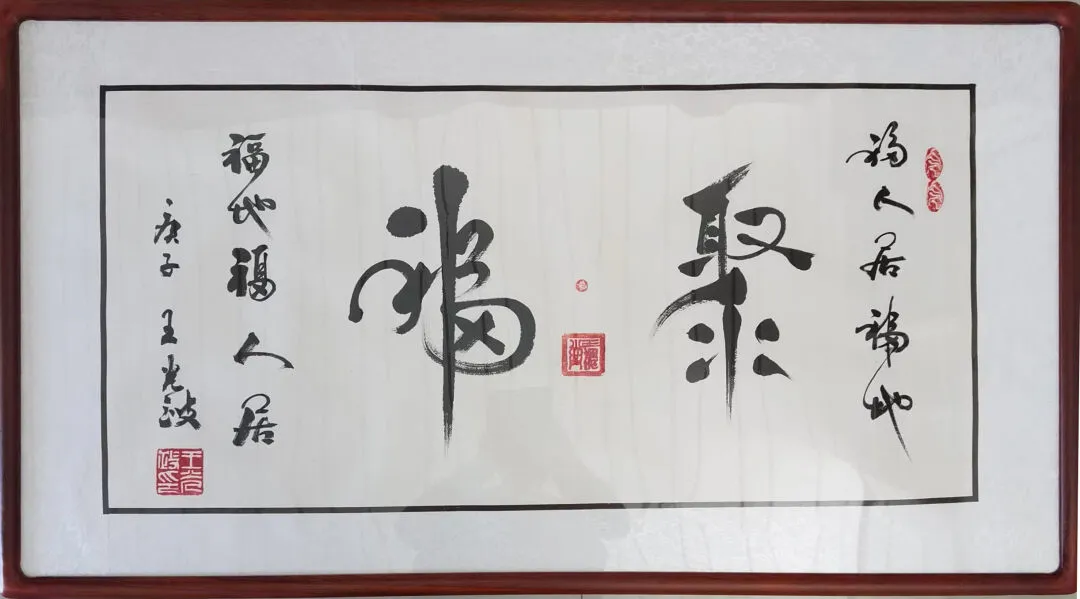 福人居福地
聚福
福地福人居
庚子 王光波